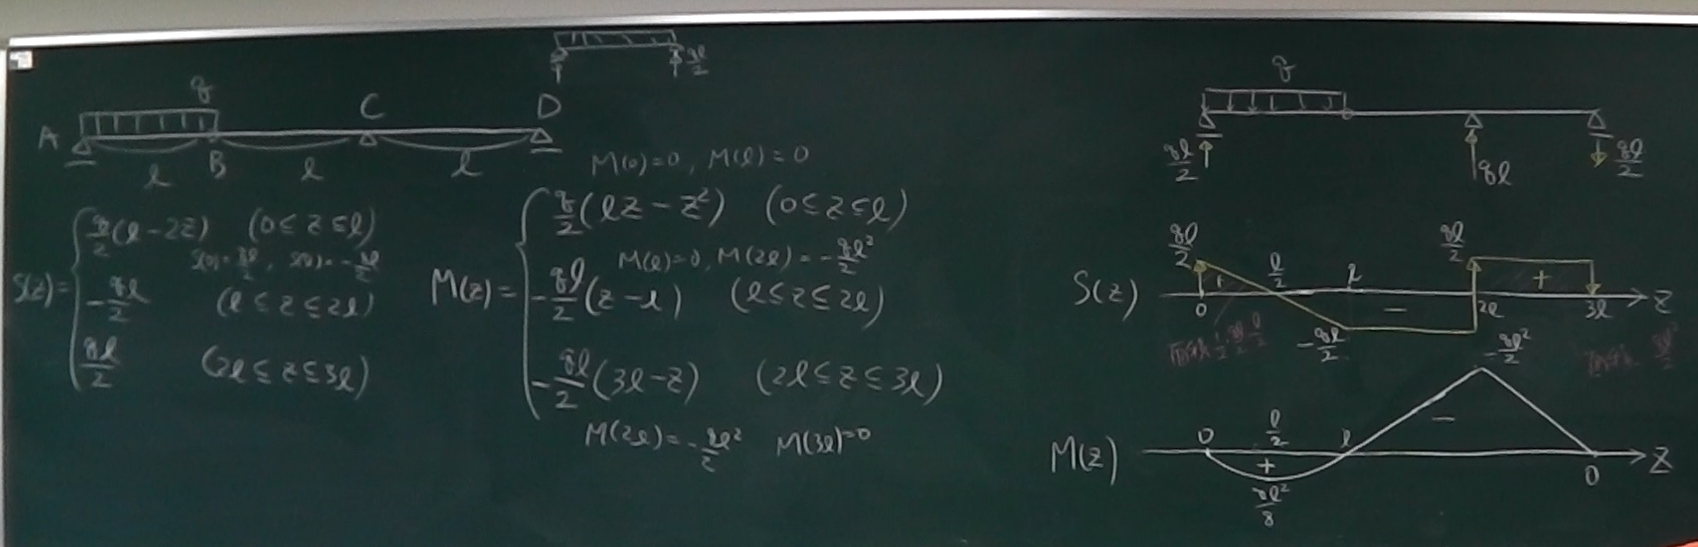 q
A B C D
l l l
ql/2
S(z) = { q/2 (l - 2z) (0 ≤ z ≤ l)
-ql/2 (l ≤ z ≤ 2l)
ql/2 (2l ≤ z ≤ 3l)
M(0)=0, M(l)=0
M(z) = { q/2 (lz - z²) (0 ≤ z ≤ l)
M(l)=0, M(2l) = -ql²/2
-ql/2 (z - l) (l ≤ z ≤ 2l)
-ql/2 (3l - z) (2l ≤ z ≤ 3l)
M(2l) = -ql²/2 M(3l)=0
q
ql/2 ql ql/2
ql/2 l/2 l ql/2
S(z) + - + z
0 2l 3l
-ql/2
-ql²/2
M(z) 0 l/2 l - 0 z
+
ql²/8